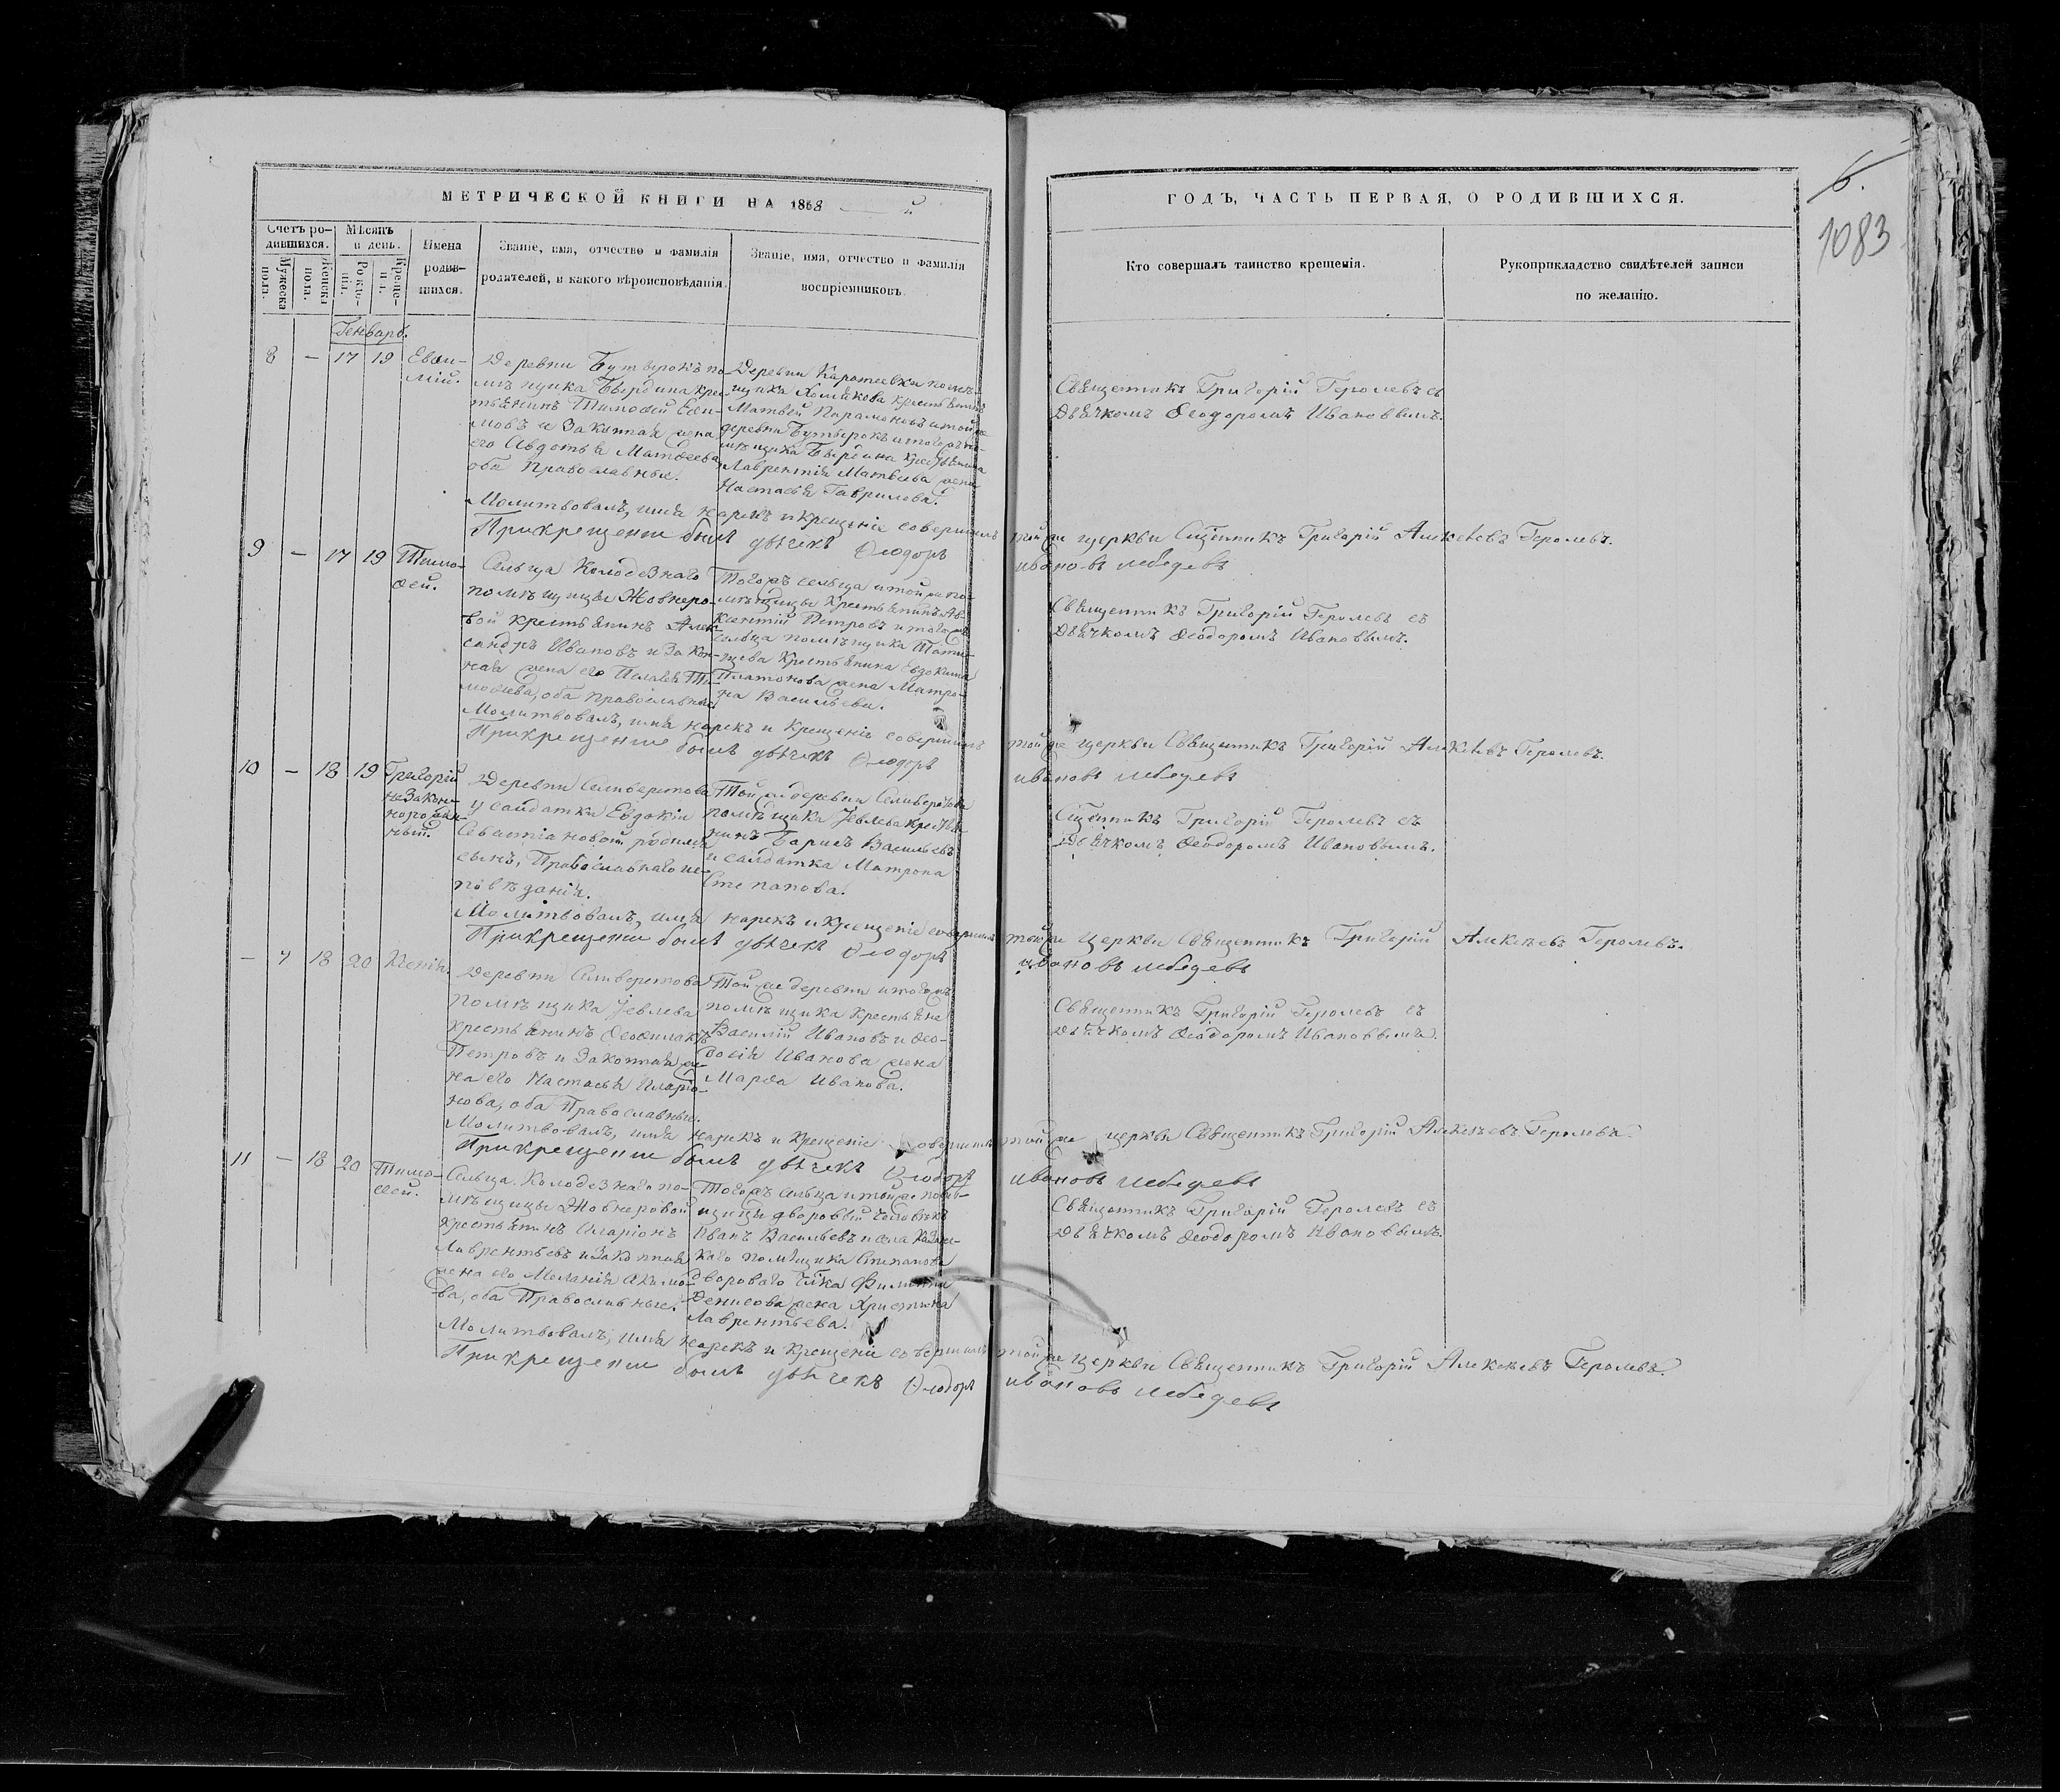 МЕТРИЧЕСКОЙ КНИГИ НА 1868 й
ГОДЪ, ЧАСТЬ ПЕРВАЯ, О РОДИВШИХСЯ.
6.
1083
Счетъ родившихся.
Мужеска пола.
Женска пола.
Мѣсяцъ и день.
Рожденія.
Крещенія.
Имена родившихся.
Званіе, имя, отчество и фамилія
родителей, и какого вѣроисповѣданія.
Званіе, имя, отчество и фамилія
воспріемниковъ.
Кто совершалъ таинство крещенія.
Рукоприкладство свидѣтелей записи
по желанію.
Генварь.
8 — 17 19
Деревни Бутырокъ по-
мѣщика крес-
тьянинъ Тимофей
и законная жена
его Авдотья Матвеева
оба Православные.
Деревни помѣ-
щика Хомякова крестьянинъ
Матвей Парамоновъ и той же
деревни Бутырокъ и тогожъ по-
мѣщика крестьянина
Лаврентія Матвеева жена
Настасья Гаврилова.
Священникъ Григорій съ
Дьячкомъ Ѳеодоромъ Ивановымъ.
Молитвовалъ, имя нарекъ и крещеніе совершилъ той же церкви Сщенникъ Григорій Алексеевъ
При крещеніи былъ дьячекъ Ѳеодоръ Ивановъ Лебедевъ
9 — 17 19
Тимо-
ѳей.
Сельца Колодезнаго
помѣщицы
вой крестьянинъ Алек-
сандръ Ивановъ и закон-
ная жена его Ти-
моѳеева, оба православные.
Тогожъ сельца и той же по-
мѣщицы крестьянинъ Ав-
ксентій Петровъ и тогожъ
сельца помѣщика
крестьянина Евдокима
Платонова жена Матро-
на Васильева.
Священникъ Григорій съ
Дьячкомъ Ѳеодоромъ Ивановымъ.
Молитвовалъ, имя нарекъ и крещеніе совершилъ той же церкви Священникъ Григорій Алексеевъ
При крещеніи былъ дьячекъ Ѳеодоръ Ивановъ Лебедевъ
10 — 18 19
Григорій
незакон-
норожден-
ный.
Деревни Селиверстова
у салдатки Евдокіи
Савастіановой родился
сынъ, Православнаго ис-
повѣданія.
Той же деревни Селиверстова
помѣщика Іевлева крестья-
нинъ Борисъ Васильевъ
и салдатка Матрона
Степанова.
Сщенникъ Григорій съ
Дьячкомъ Ѳеодоромъ Ивановымъ.
Молитвовалъ, имя нарекъ и крещеніе совершилъ той же церкви Священникъ Григорій Алексѣевъ
При крещеніи былъ дьячекъ Ѳеодоръ Ивановъ Лебедевъ
— 4 18 20
Ксенія.
Деревни Селиверстова
помѣщика Іевлева
крестьянинъ Ѳеофилактъ
Петровъ и законная же-
на его Настасья Иларіо-
нова, оба Православные.
Той же деревни и тогожъ
помѣщика крестьяне
Василій Ивановъ и Ѳео-
досія Иванова жена
Марѳа Иванова.
Священникъ Григорій съ
Дьячкомъ Ѳеодоромъ Ивановымъ.
Молитвовалъ, имя нарекъ и крещеніе совершилъ той же церкви Священникъ Григорій Алексѣевъ
При крещеніи былъ дьячекъ Ѳеодоръ Ивановъ Лебедевъ
11 — 18 20
Тимо-
ѳей.
Сельца Колодезнаго по-
мѣщицы
крестьянинъ Иларіонъ
Лаврентьевъ и законная
жена его Меланія Акимо-
ва, оба Православные.
Тогожъ сельца и той же помѣ-
щицы дворовый человѣкъ
Иванъ Васильевъ и села
помѣщика Степанова
двороваго
Денисова жена Христина
Лаврентьева.
Священникъ Григорій съ
Дьячкомъ Ѳеодоромъ Ивановымъ.
Молитвовалъ, имя нарекъ и крещеніе совершилъ той же церкви Священникъ Григорій Алексѣевъ
При крещеніи былъ дьячекъ Ѳеодоръ Ивановъ Лебедевъ